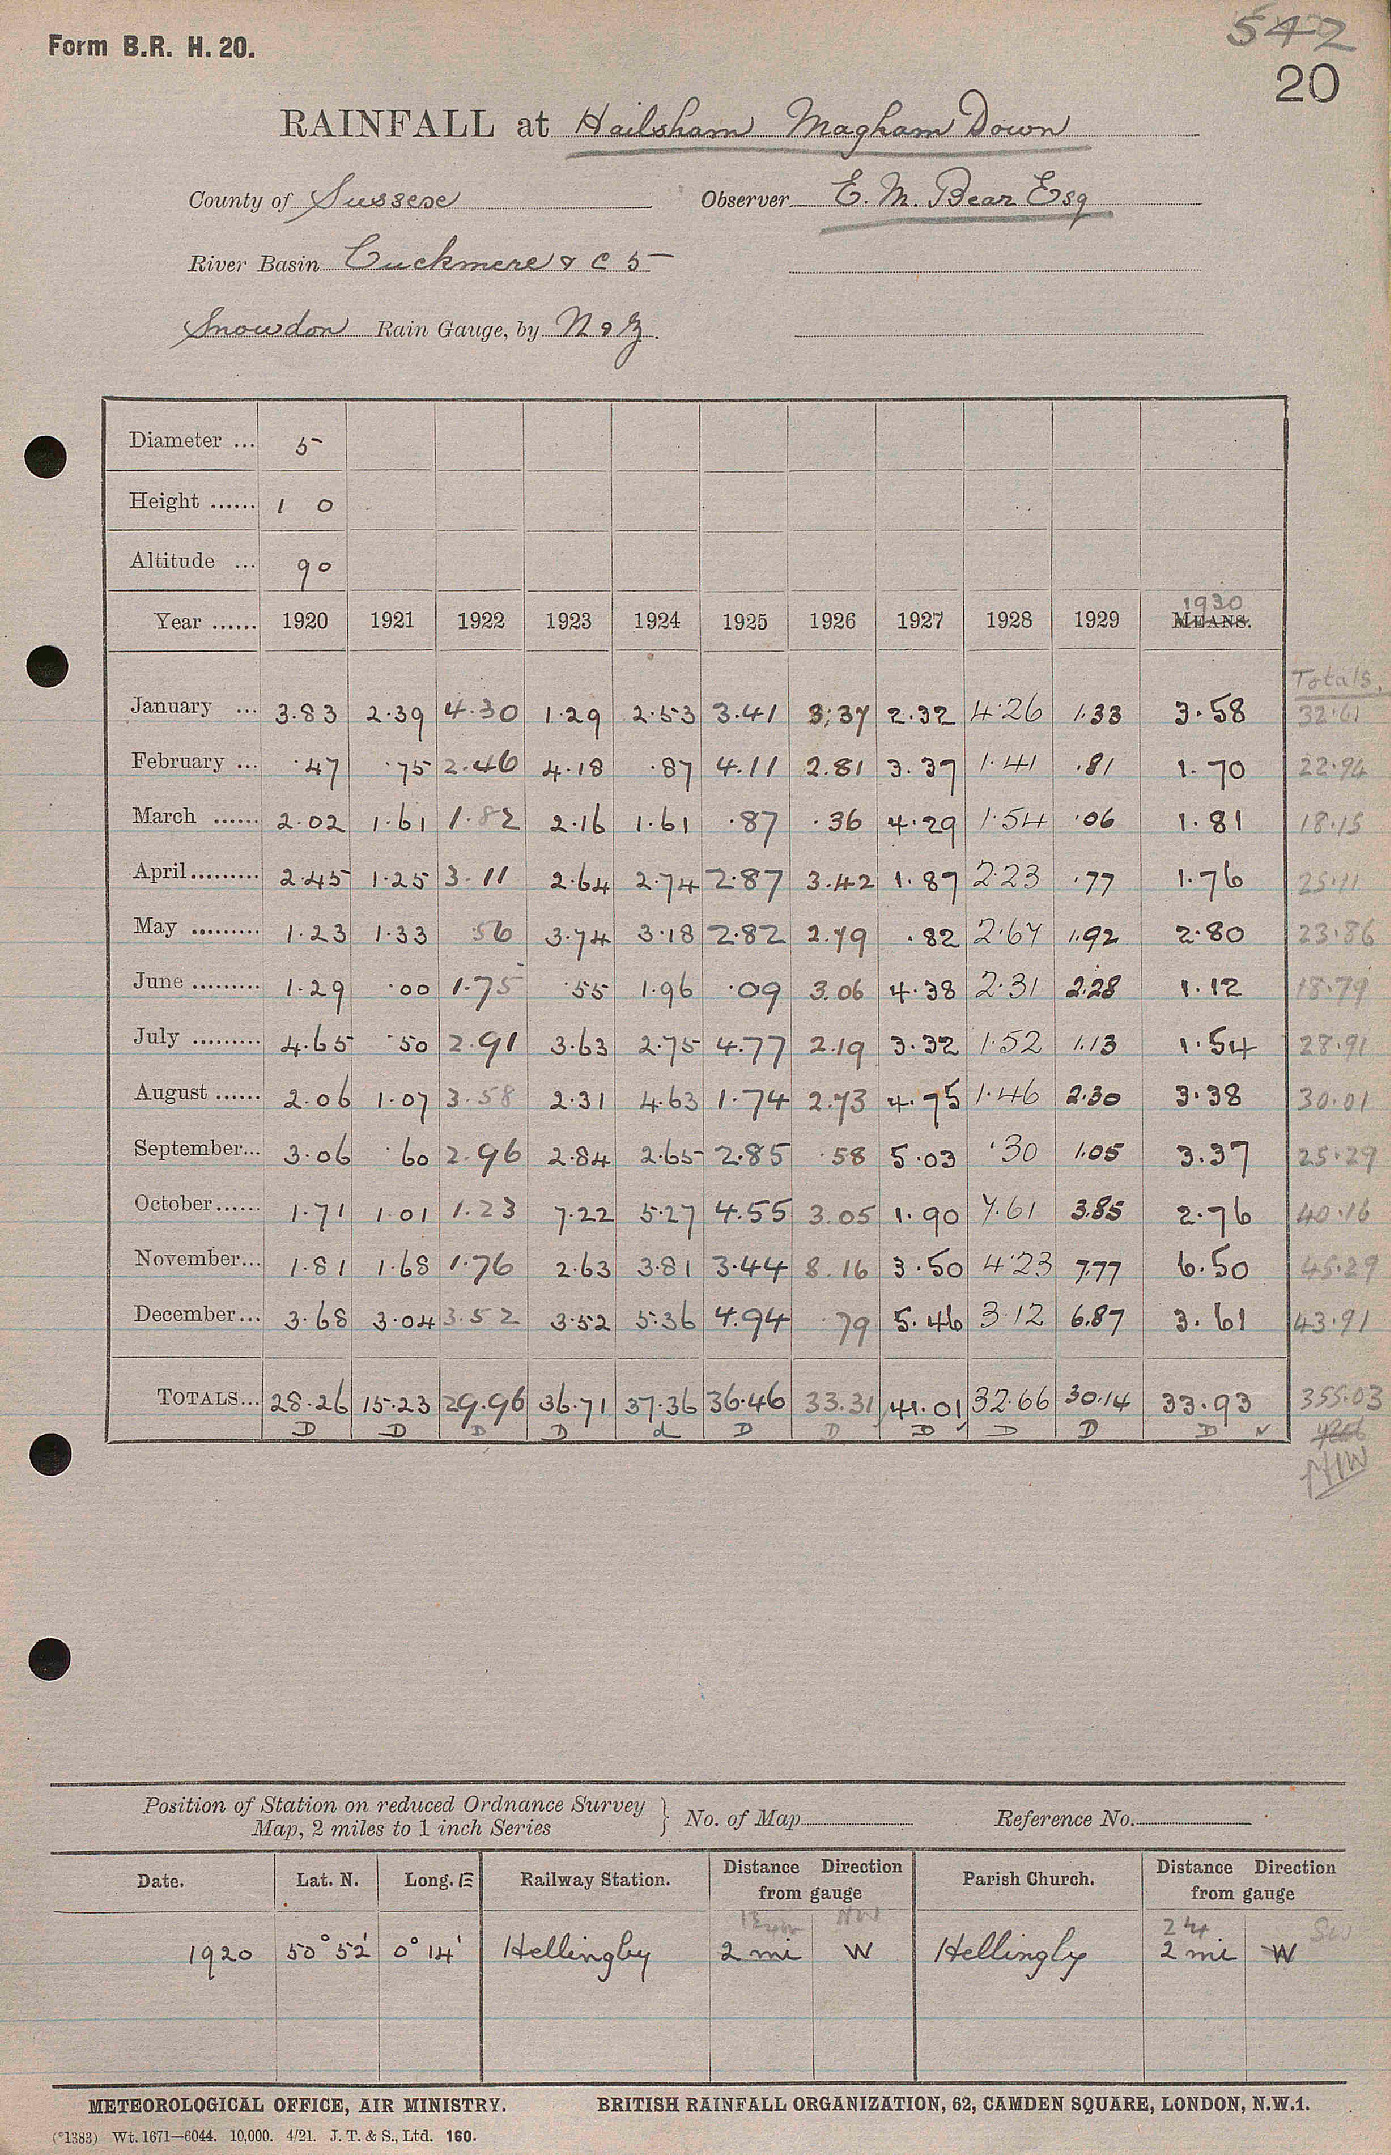 Form B.R. H. 20.
542
20
RAINFALL at Hailsham Magham Down
County of Sussex Observer E. M. Bear Esq
River Basin Cuckmere & C 5
Snowdon Rain Gauge, by N & Z
Diameter ... 5
Height ...... 1 0
Altitude ... 90
1930
Year ...... 1920 1921 1922 1923 1924 1925 1926 1927 1928 1929 MEANS.
Totals.
January ... 3.83 2.39 4.30 1.29 2.53 3.41 3.37 2.32 4.26 1.33 3.58 32.61
February ... .47 .75 2.46 4.18 .87 4.11 2.81 3.37 1.41 .81 1.70 22.94
March ...... 2.02 1.61 1.82 2.16 1.61 .87 .36 4.29 1.54 .06 1.81 18.15
April......... 2.45 1.25 3.11 2.64 2.74 2.87 3.42 1.87 2.23 .77 1.76 25.11
May ......... 1.23 1.33 .56 3.74 3.18 2.82 2.79 .82 2.67 1.92 2.80 23.86
June ......... 1.29 .00 1.75 .55 1.96 .09 3.06 4.38 2.31 2.28 1.12 18.79
July ......... 4.65 .50 2.91 3.63 2.75 4.77 2.19 3.32 1.52 1.13 1.54 28.91
August ...... 2.06 1.07 3.58 2.31 4.63 1.74 2.73 4.75 1.46 2.30 3.38 30.01
September... 3.06 .60 2.96 2.84 2.65 2.85 .58 5.03 .30 1.05 3.37 25.29
October...... 1.71 1.01 1.23 7.22 5.27 4.55 3.05 1.90 7.61 3.85 2.76 40.16
November... 1.81 1.68 1.76 2.63 3.81 3.44 8.16 3.50 4.23 7.77 6.50 45.29
December... 3.68 3.04 3.52 3.52 5.36 4.94 .79 5.46 3.12 6.87 3.61 43.91
TOTALS... 28.26 15.23 29.96 36.71 37.36 36.46 33.31 41.01 32.66 30.14 33.93 355.03
D D D D d D D D D D D N
Position of Station on reduced Ordnance Survey } No. of Map Reference No.
Map, 2 miles to 1 inch Series
Date. Lat. N. Long. E Railway Station. Distance Direction from gauge Parish Church. Distance Direction from gauge
NW 2¼ SW
1920 50° 52' 0° 14' Hellingly 2 mi W Hellingly 2 mi W
METEOROLOGICAL OFFICE, AIR MINISTRY. BRITISH RAINFALL ORGANIZATION, 62, CAMDEN SQUARE, LONDON, N.W.1.
(*1383) Wt. 1671—6044. 10,000. 4/21. J. T. & S., Ltd. 160.